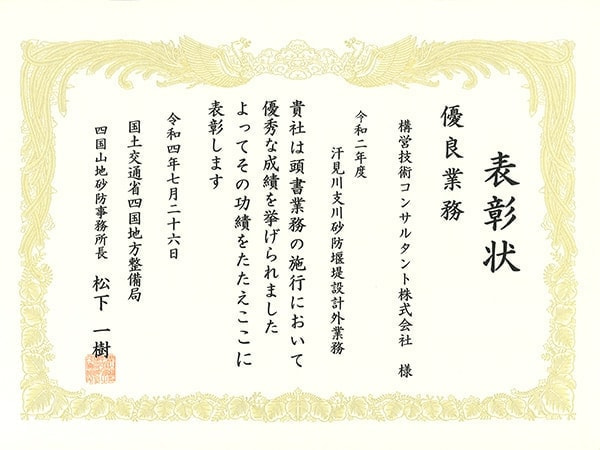 表彰状
優良業務
構営技術コンサルタント株式会社 様
令和二年度
汗見川支川砂防堰堤設計外業務
貴社は頭書業務の施行において
優秀な成績を挙げられました
よってその功績をたたえここに
表彰します
令和四年七月二十六日
国土交通省四国地方整備局
四国山地砂防事務所長 松下 一樹